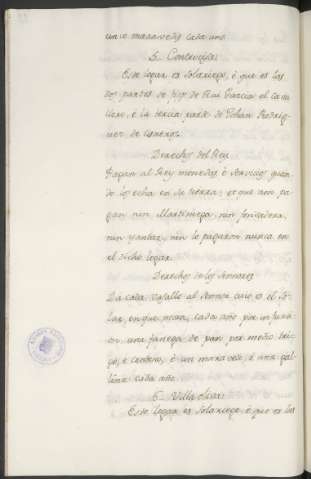 un o maravedis cada uno.
5. Contreijas.
Este logar es solariego, é que es las
dos partes de fijo de Rui Garcia el caui
llero, é la tercia parte de Johan Rodrig
uez de Cisneros.
Derechos del Rey
Pagan al Rey monedas é servicios quan
do los echa en su tierra: et que non pa
gan nin Martiniega, nin fonsadera,
nin yantar, nin lo pagaron nunca en
el dicho logar.
Derechos de los Señores
Da cada vasallo al Señor cuio es el so
lar, en que mora, cada año por infurci
on una fanega de pan por medio tri
go, é cevada, é un maravedi, é una ga
llina cada año.
6. Villa
Este logar es solariego, é que es los